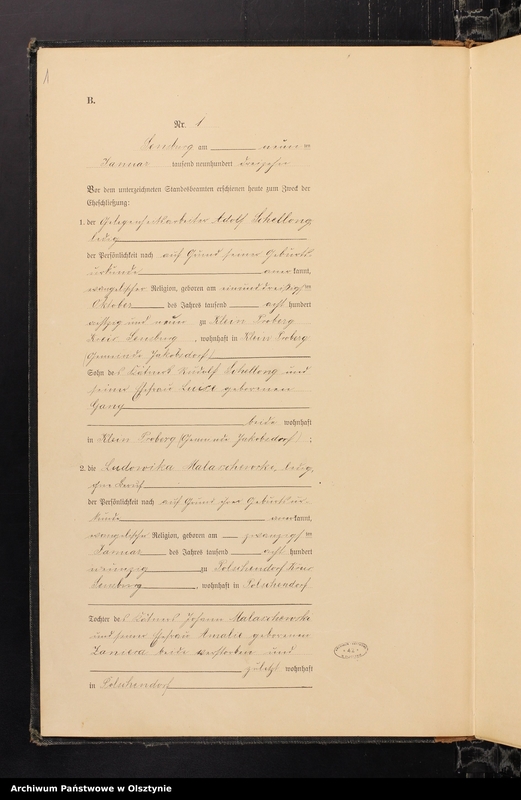 1
B.
Nr. 1
Sensburg am neunten
Januar tausend neunhundert dreizehn
Vor dem unterzeichneten Standesbeamten erschienen heute zum Zweck der
Eheschließung:
1. der Gelegenheitsarbeiter Adolf Schellong
ledig
der Persönlichkeit nach auf Grund seiner Geburts-
urkunde anerkannt,
evangelischer Religion, geboren am einunddreißigsten
Oktober des Jahres tausend acht hundert
achtzig und neun zu Klein Proberg
Kreis Sensburg, wohnhaft in Klein Proberg
(Gemeinde Jakobsdorf)
Sohn des Kätners Rudolf Schellong und
seiner Ehefrau geborenen
beide wohnhaft
in Klein Proberg (Gemeinde Jakobsdorf);
2. die Ludowika Malaschewski, ledig,
ohne Beruf
der Persönlichkeit nach auf Grund ihrer Geburtsur-
kunde anerkannt,
evangelischer Religion, geboren am zwanzigsten
Januar des Jahres tausend acht hundert
neunzig zu Polschendorf Kreis
Sensburg, wohnhaft in Polschendorf
Tochter des Kätners Johann Malaschewski
und seiner Ehefrau Amalie geborenen
beide verstorben und
zuletzt wohnhaft
in Polschendorf
Archiwum Państwowe w Olsztynie